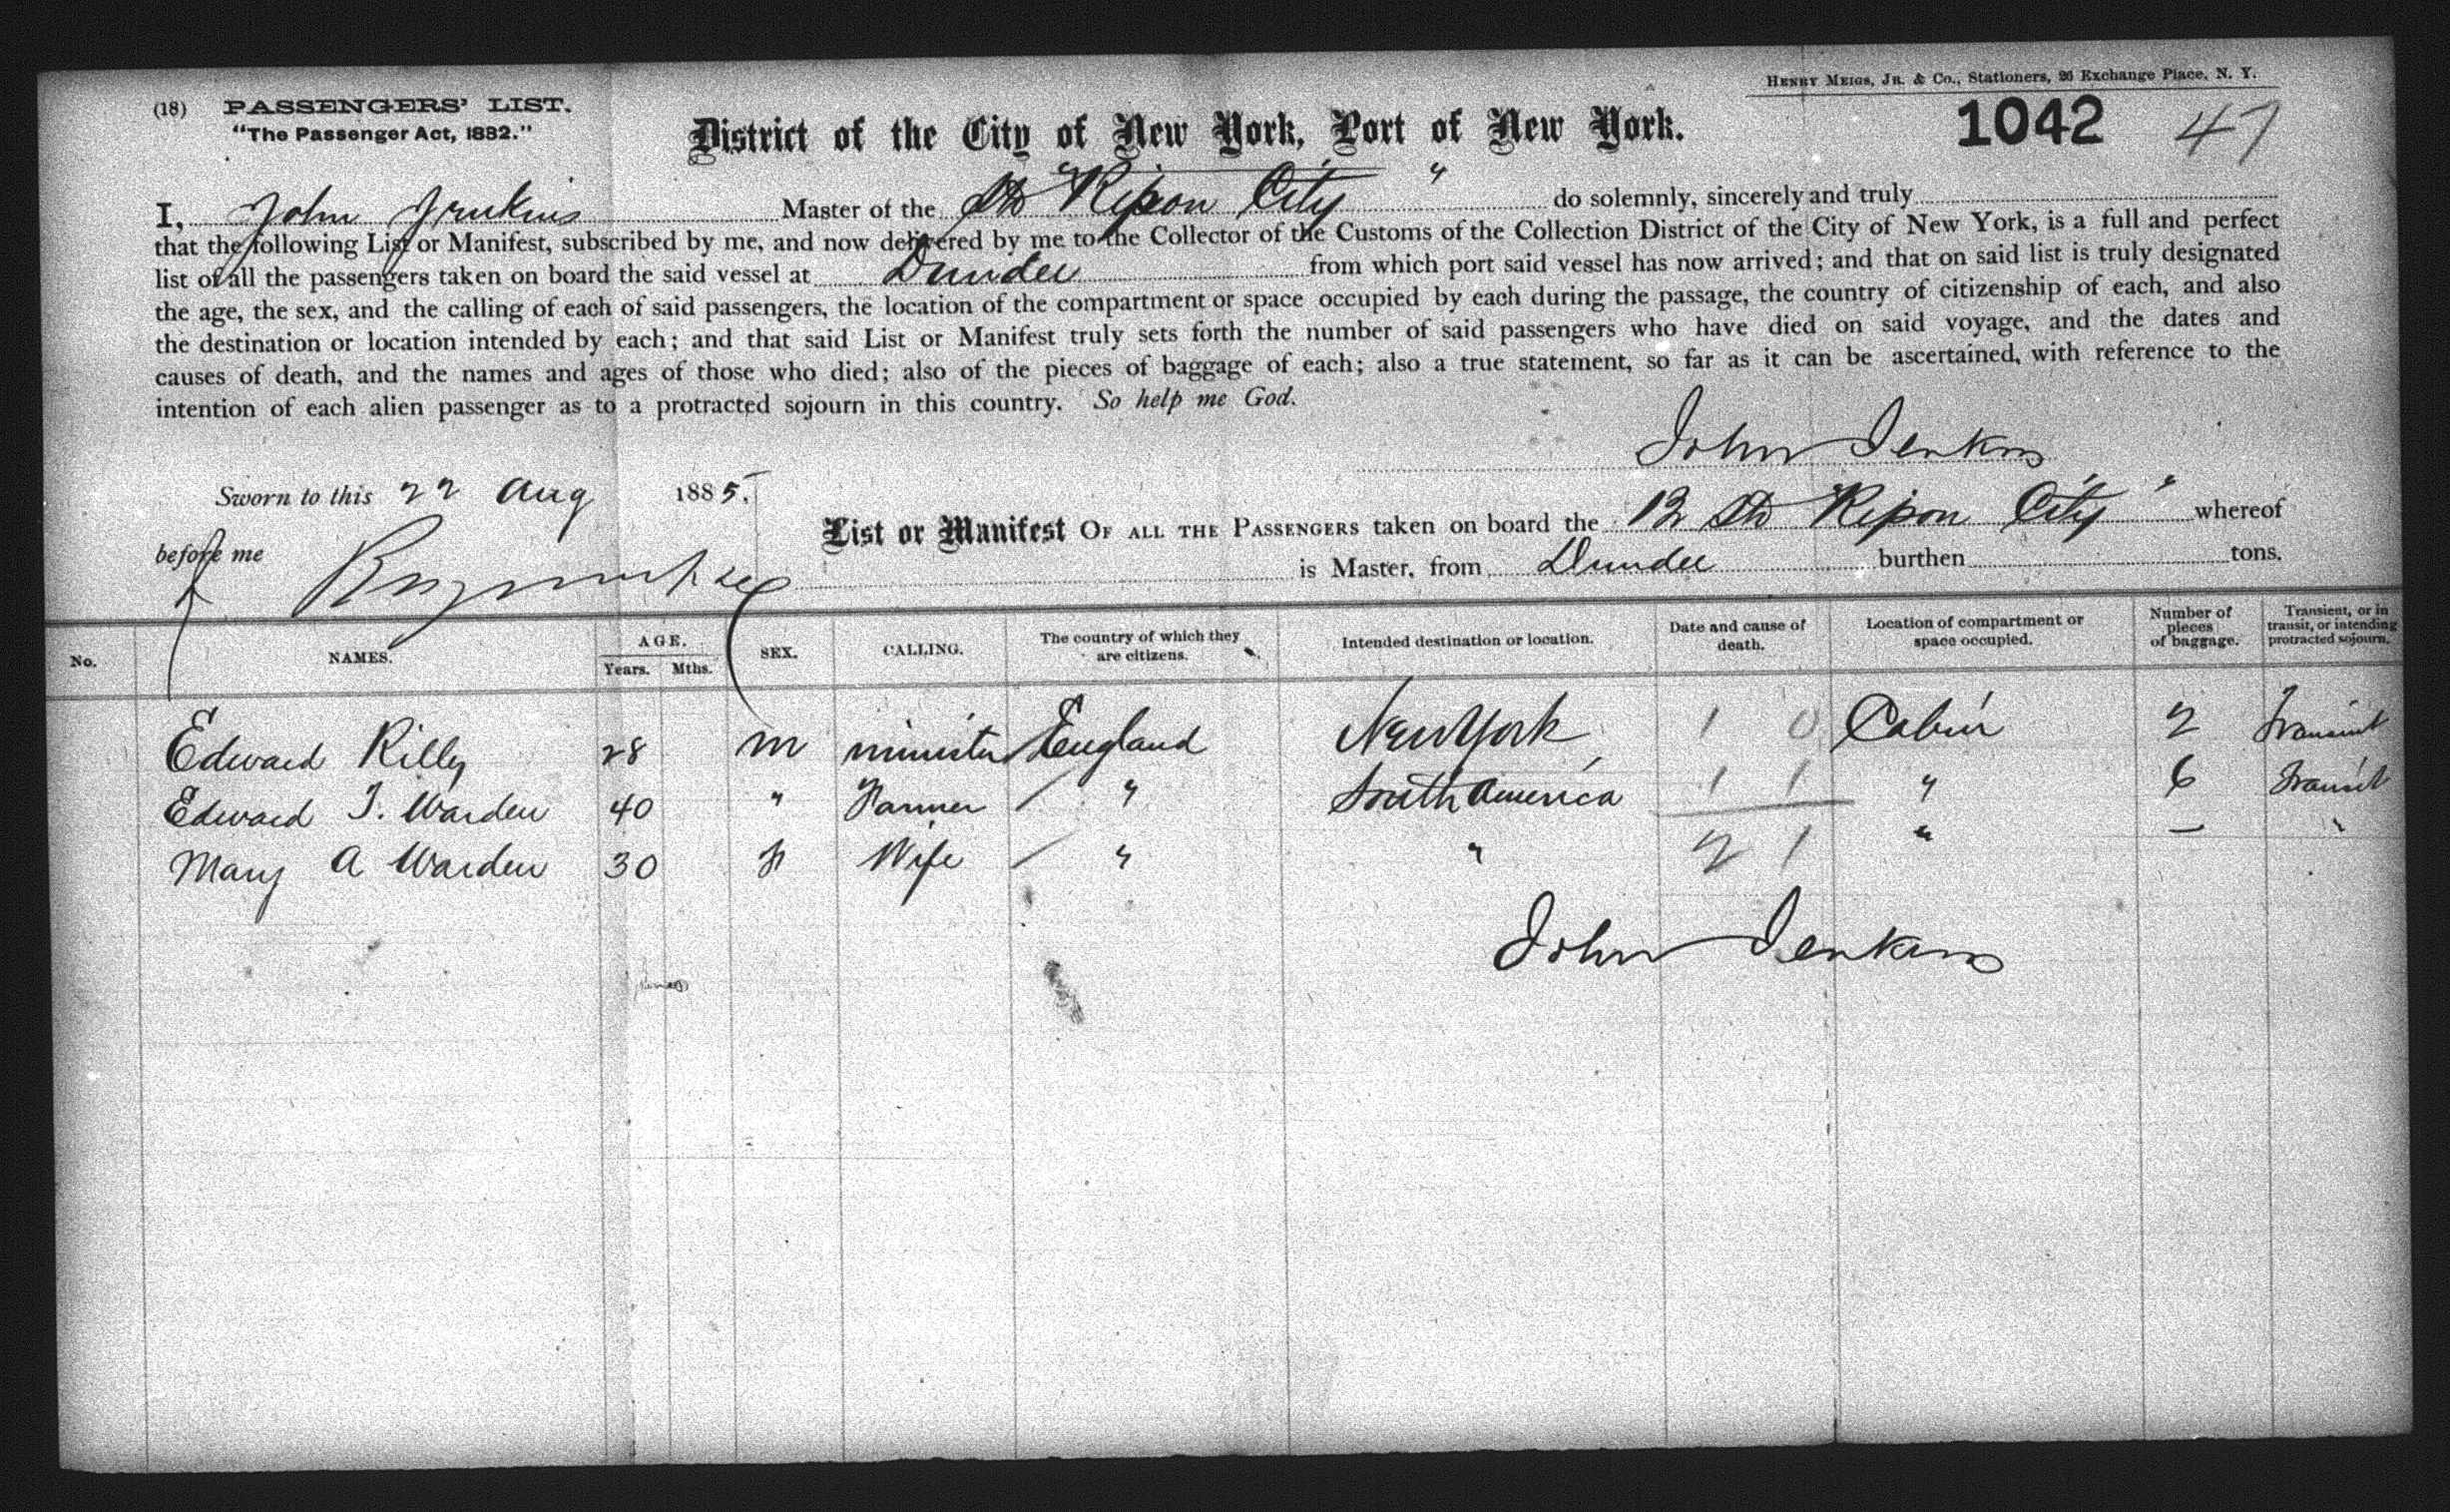 HENRY MEIGS, JR. & CO., Stationers, 26 Exchange Place, N. Y.
(18) PASSENGERS' LIST.
"The Passenger Act, 1882."
District of the City of New York, Port of New York.
1042 47
I, John Jenkins Master of the "Ripon City" do solemnly, sincerely and truly
that the following List or Manifest, subscribed by me, and now delivered by me to the Collector of the Customs of the Collection District of the City of New York, is a full and perfect
list of all the passengers taken on board the said vessel at Dundee from which port said vessel has now arrived; and that on said list is truly designated
the age, the sex, and the calling of each of said passengers, the location of the compartment or space occupied by each during the passage, the country of citizenship of each, and also
the destination or location intended by each; and that said List or Manifest truly sets forth the number of said passengers who have died on said voyage, and the dates and
causes of death, and the names and ages of those who died; also of the pieces of baggage of each; also a true statement, so far as it can be ascertained, with reference to the
intention of each alien passenger as to a protracted sojourn in this country. So help me God.
John Jenkins
Sworn to this 22 Aug 1885.
before me
List or Manifest OF ALL THE PASSENGERS taken on board the "Ripon City" whereof
is Master, from Dundee burthen tons.
No. NAMES. AGE. Years. Mths. SEX. CALLING. The country of which they are citizens. Intended destination or location. Date and cause of death. Location of compartment or space occupied. Number of pieces of baggage. Transient, or in transit, or intending protracted sojourn.
Edward Rilly 28 m minister England New York 1 0 Cabin 2 Transient
Edward T. Warden 40 " Farmer / " South America 1 1 " 6 Transit
Mary A Warden 30 f Wife / " " 2 1 " — "
John Jenkins